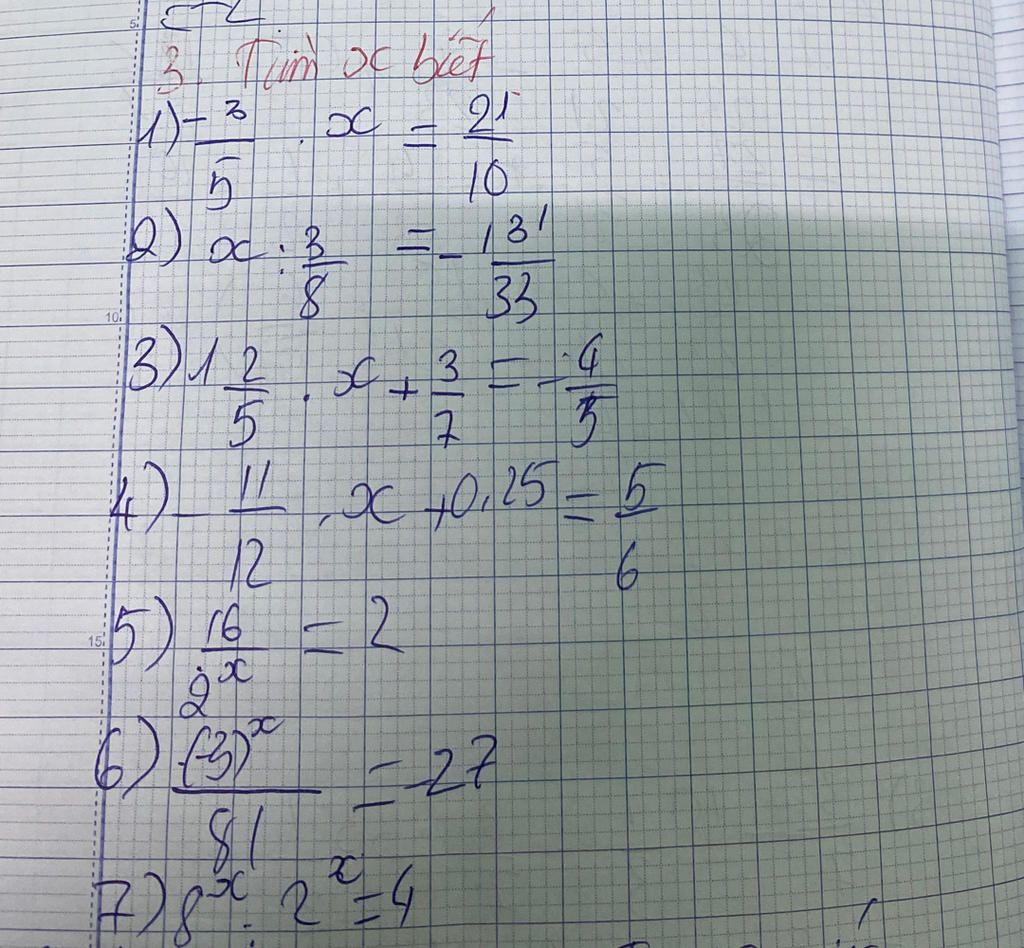 3. Tìm x biết
1) -3/5 . x = 21/10
2) x : 3/8 = - 131/33
3) 1 2/5 . x + 3/7 = - 4/5
4) - 11/12 . x + 0,25 = 5/6
5) 16/2^x = 2
6) (-3)^x/81 = -27
7) 8^x : 2^x = 4